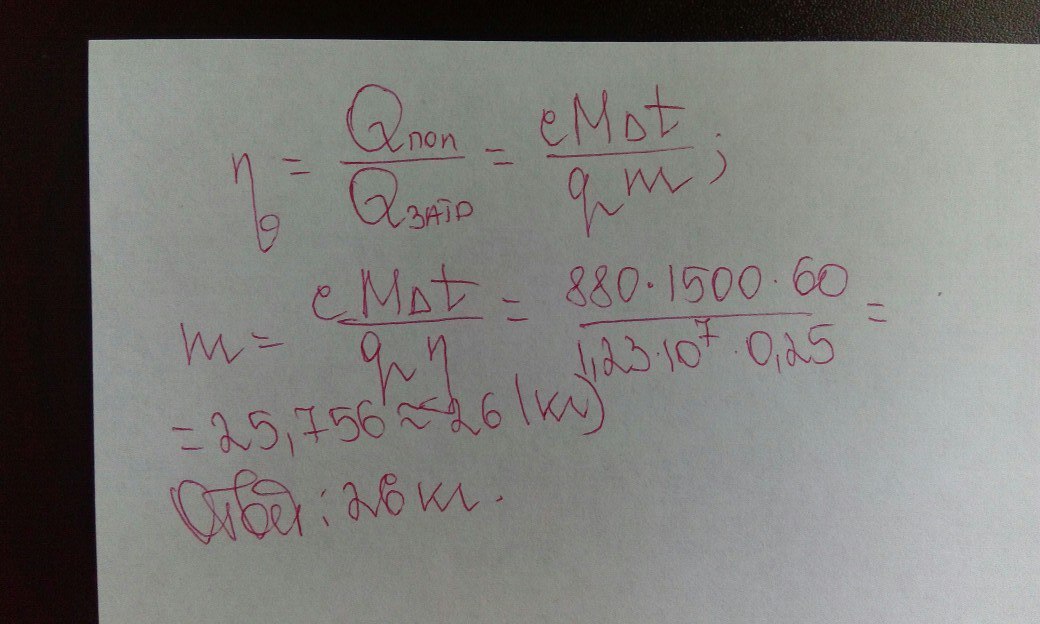 η = Qпол / Qзатр = cMΔt / qm ;
m = cMΔt / qη = 880·1500·60 / 1,23·10⁷·0,25 =
= 25,756 ≈ 26 (кг)
Ответ: 26 кг.